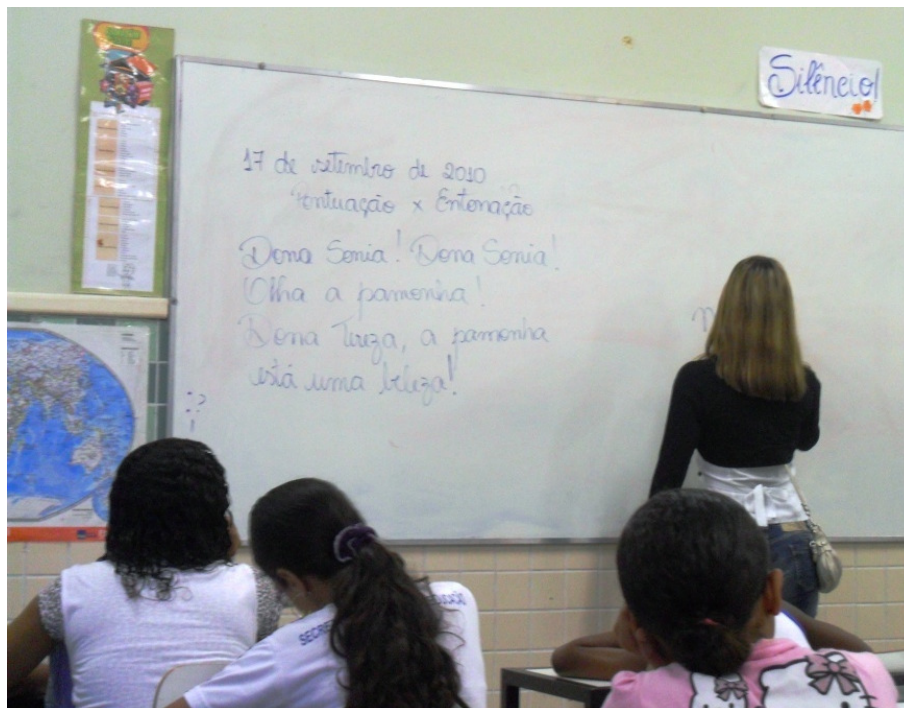 Silêncio!
17 de setembro de 2010
Pontuação x Entonação
Dona Sonia! Dona Sonia!
Olha a pamonha!
Dona Tereza, a pamonha
está uma beleza!
: ?
!
n
SECRE